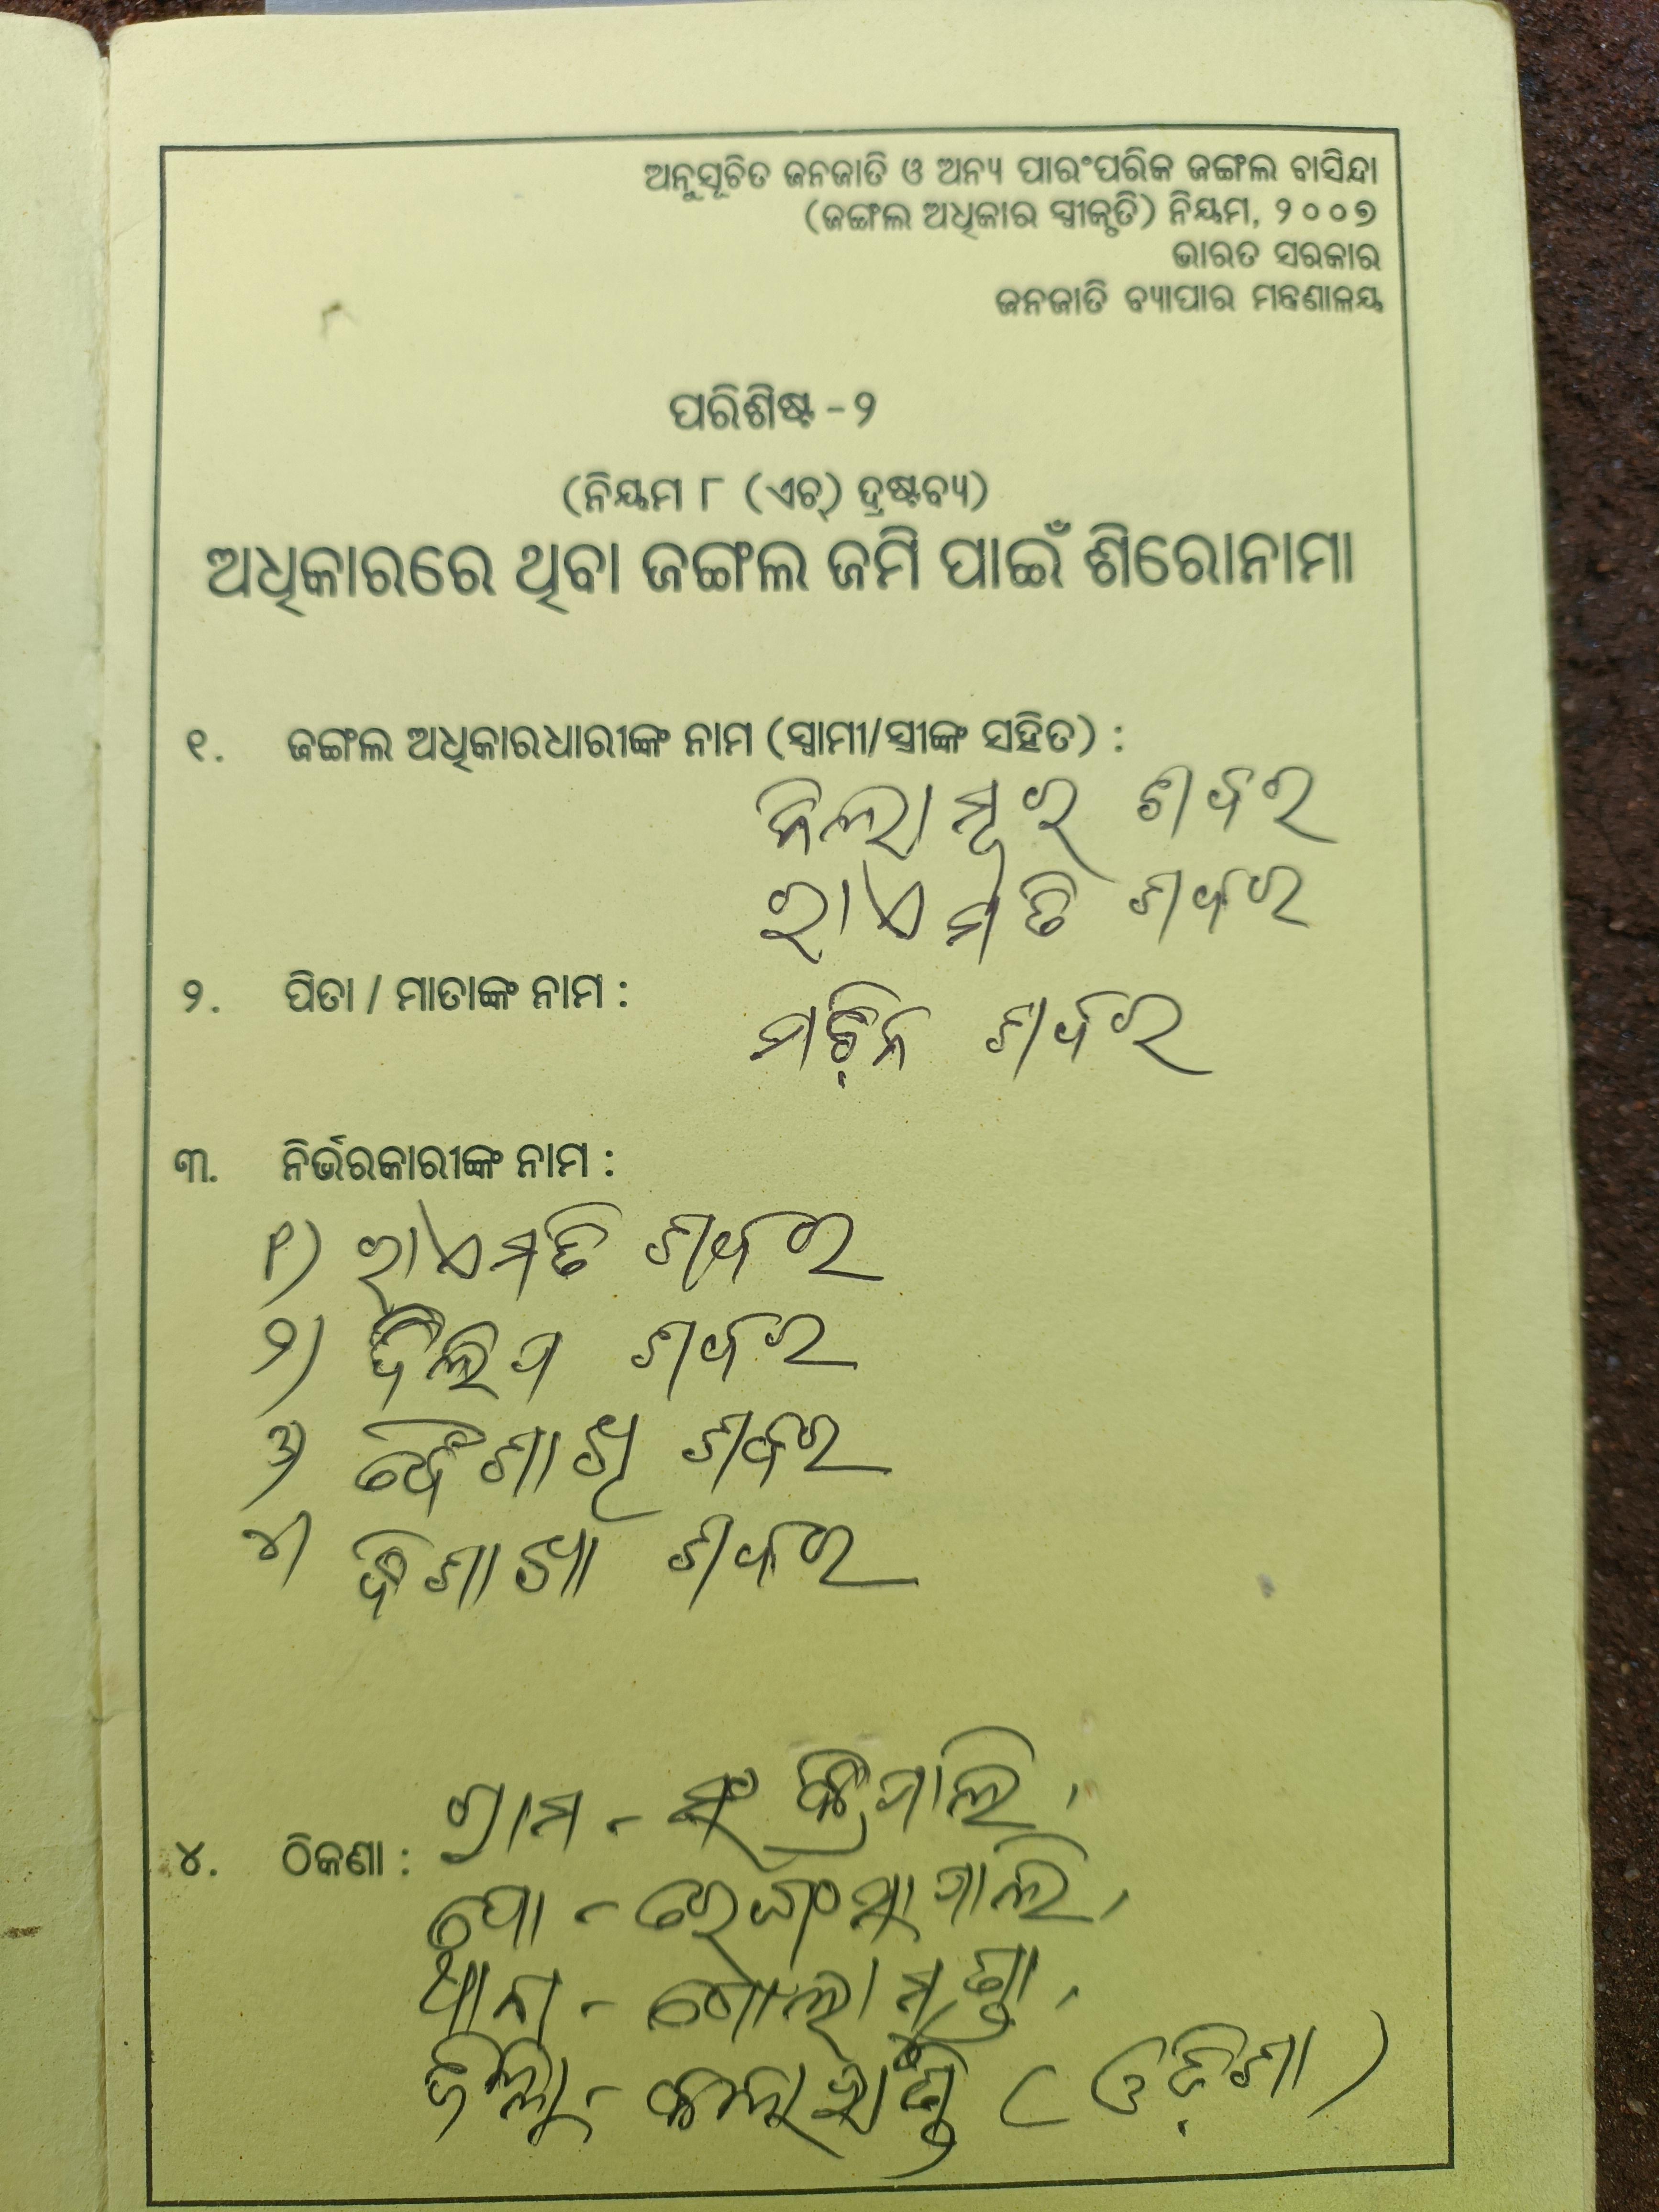 ଅନୁସୂଚିତ ଜନଜାତି ଓ ଅନ୍ୟ ପାରଂପରିକ ଜଙ୍ଗଲ ବାସିନ୍ଦା
(ଜଙ୍ଗଲ ଅଧିକାର ସ୍ୱୀକୃତି) ନିୟମ, ୨୦୦୭
ଭାରତ ସରକାର
ଜନଜାତି ବ୍ୟାପାର ମନ୍ତ୍ରଣାଳୟ
ପରିଶିଷ୍ଟ - ୨
(ନିୟମ ୮ (ଏଚ୍) ଦ୍ରଷ୍ଟବ୍ୟ)
ଅଧିକାରରେ ଥିବା ଜଙ୍ଗଲ ଜମି ପାଇଁ ଶିରୋନାମା
୧. ଜଙ୍ଗଲ ଅଧିକାରଧାରୀଙ୍କ ନାମ (ସ୍ୱାମୀ/ସ୍ତ୍ରୀଙ୍କ ସହିତ) :
ଶବର
ରାଏମତି ଶବର
୨. ପିତା / ମାତାଙ୍କ ନାମ :
ଶବର
୩. ନିର୍ଭରକାରୀଙ୍କ ନାମ :
୧) ରାଏମତି ଶବର
୨) ଦିଲିପ ଶବର
୩) ବୈଶାଖି ଶବର
୪) ବିଶାଖା ଶବର
ଗ୍ରାମ -
୪. ଠିକଣା :
ପୋ -
ଥାନା - ଗୋଲାମୁଣ୍ଡା,
ଜିଲ୍ଲା - କଳାହାଣ୍ଡି (ଓଡ଼ିଶା)